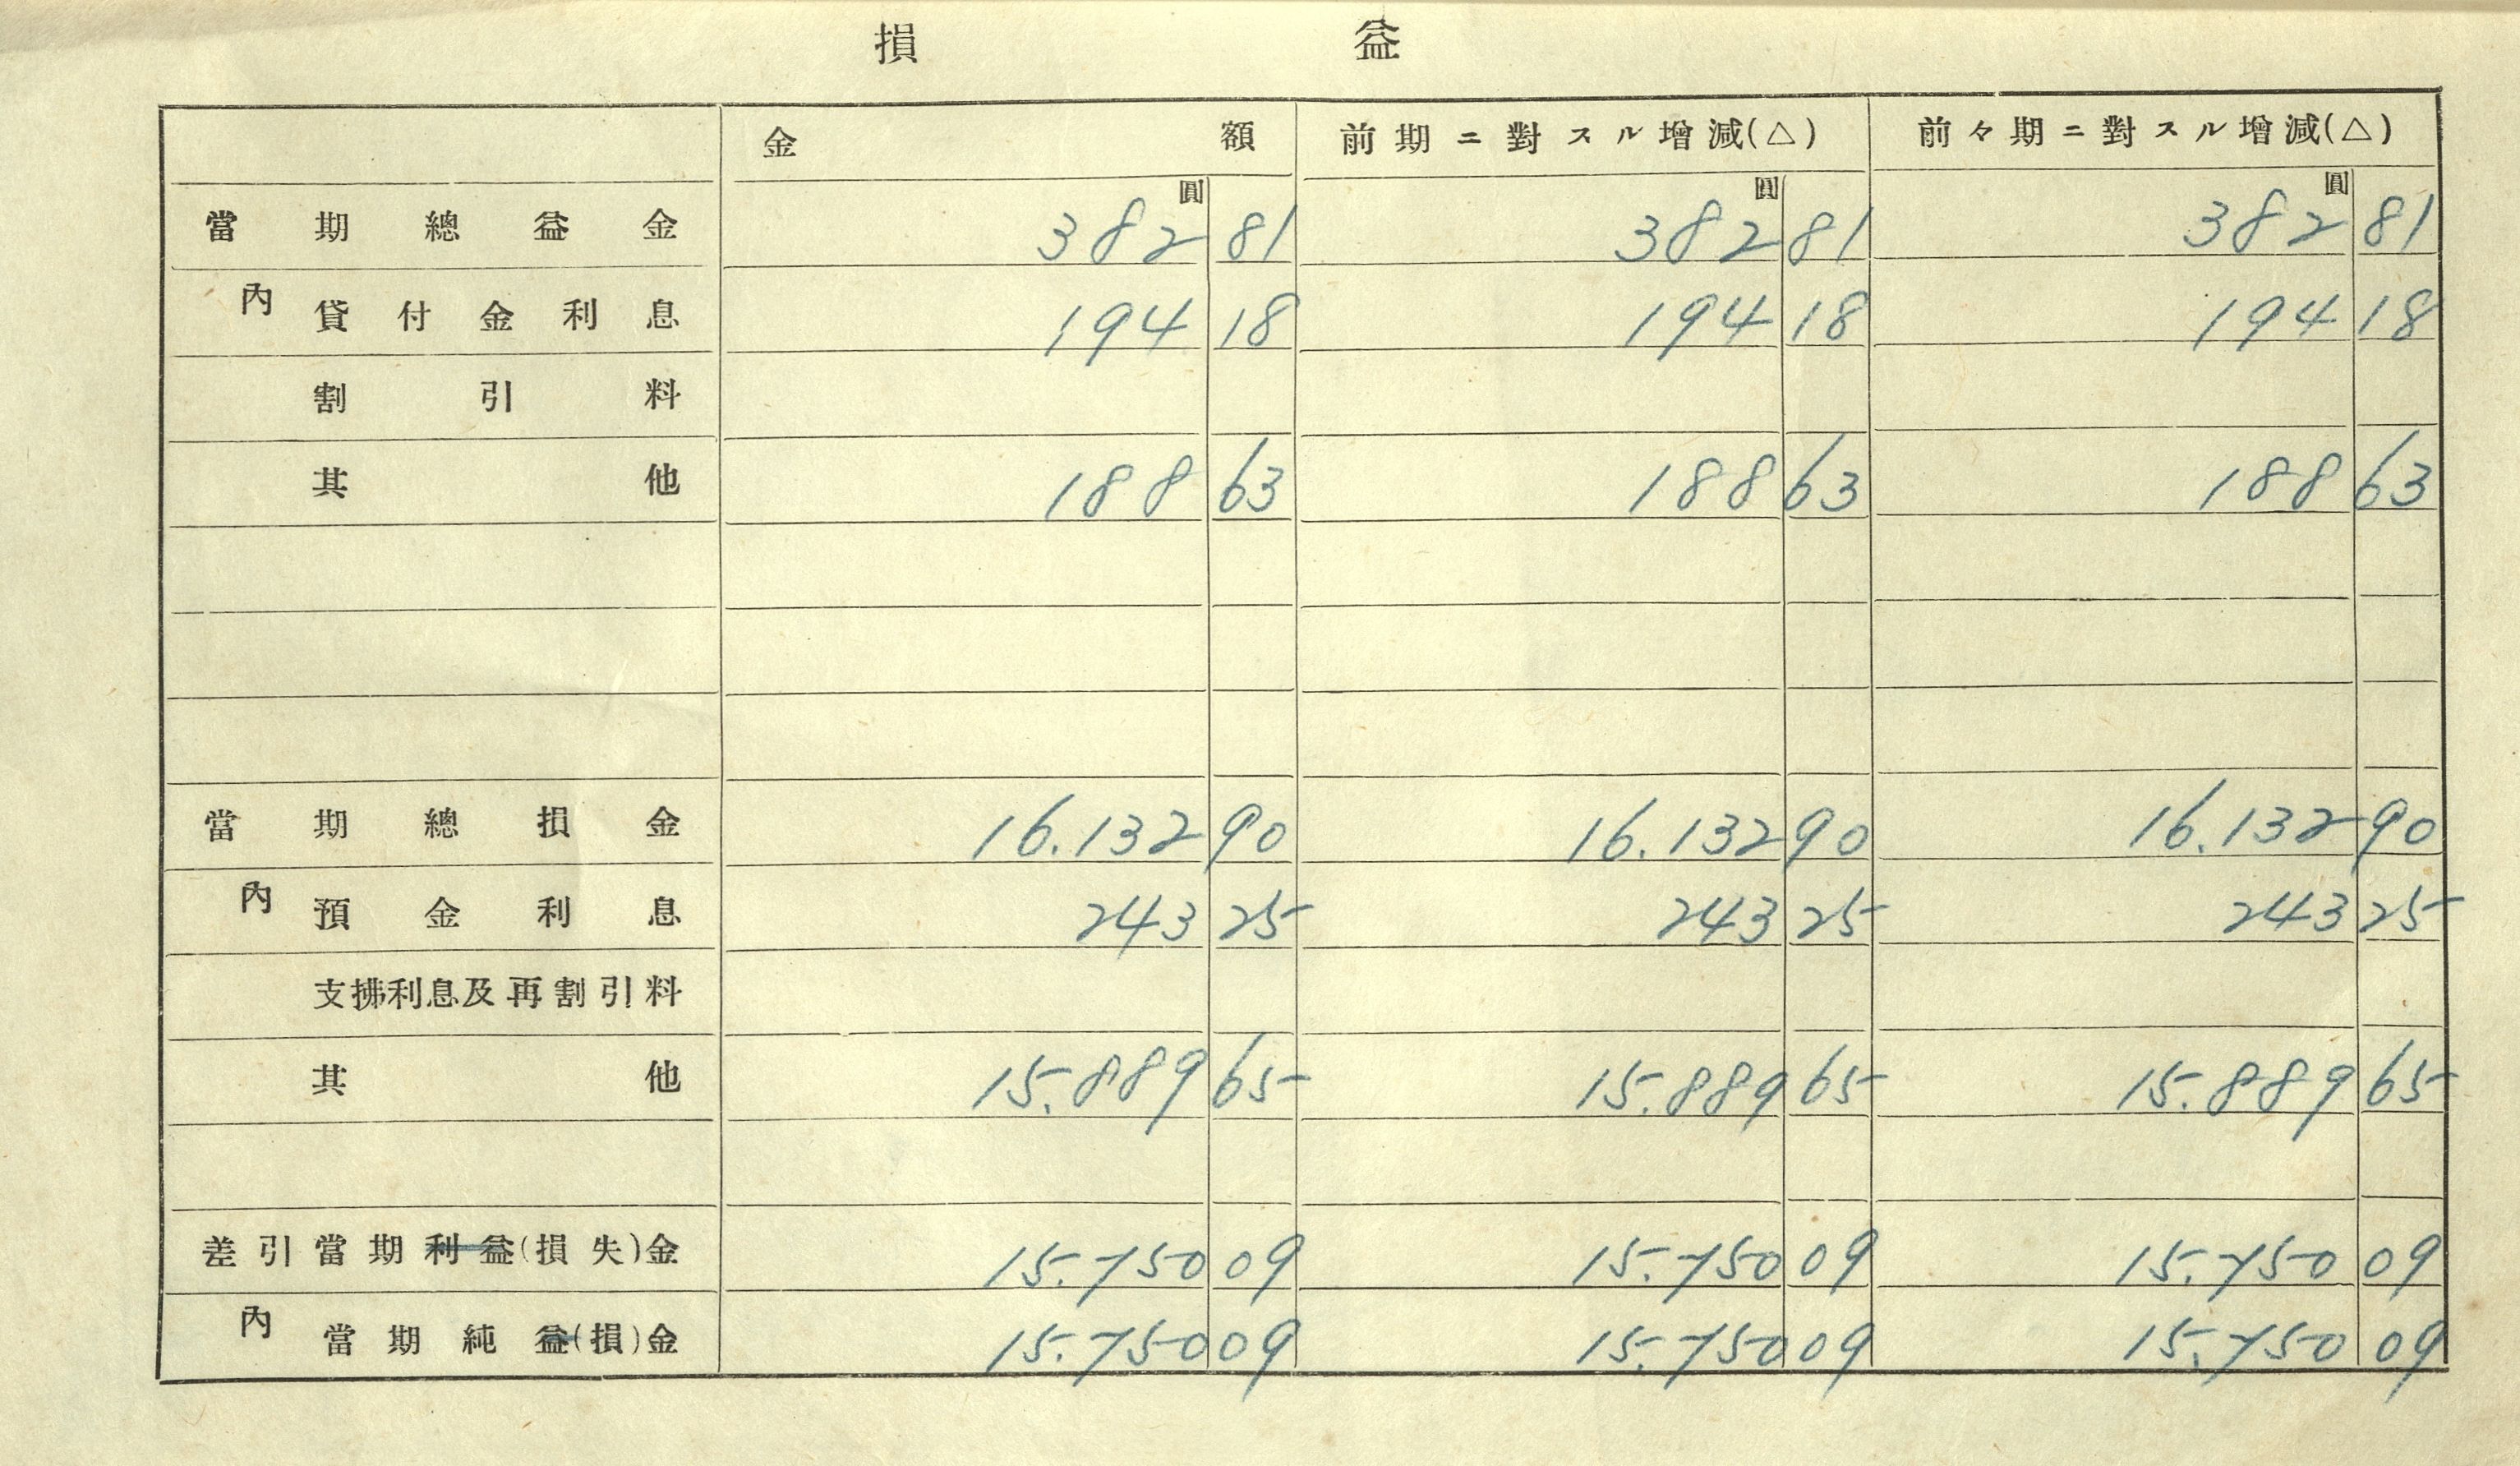 損益
金額 前期ニ對スル增減(△) 前々期ニ對スル增減(△)
圓 圓 圓
當期總益金 382 81 382 81 382 81
內 貸付金利息 194 18 194 18 194 18
割引料
其他 188 63 188 63 188 63
當期總損金 16.132 90 16.132 90 16.132 90
內 預金利息 243 25 243 25 243 25
支拂利息及再割引料
其他 15.889 65 15.889 65 15.889 65
差引當期利益(損失)金 15.750 09 15.750 09 15.750 09
內 當期純益(損)金 15.750 09 15.750 09 15.750 09